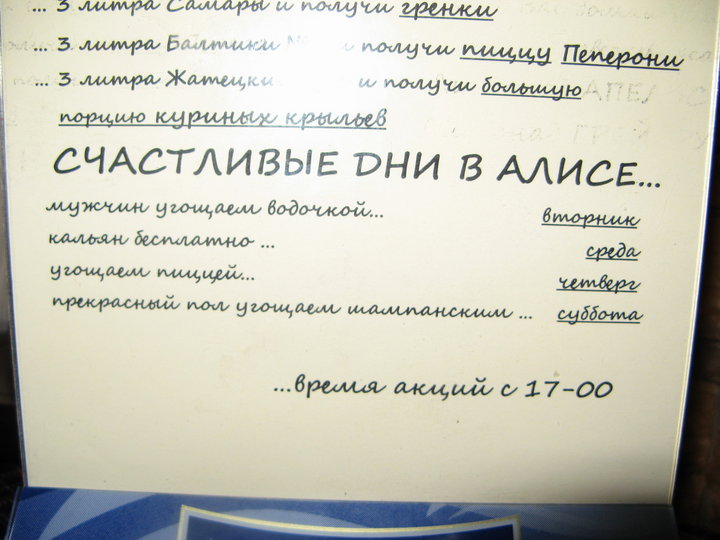 ... 3 литра Самары и получи гренки
... 3 литра Балтики и получи пиццу Пеперони
... 3 литра Жатецки и получи большую
порцию куриных крыльев
СЧАСТЛИВЫЕ DНИ В АЛИСЕ...
мужчин угощаем водочкой... вторник
кальян бесплатно ... среда
угощаем пиццей... четверг
прекрасный пол угощаем шампанским ... суббота
...время акций с 17-00